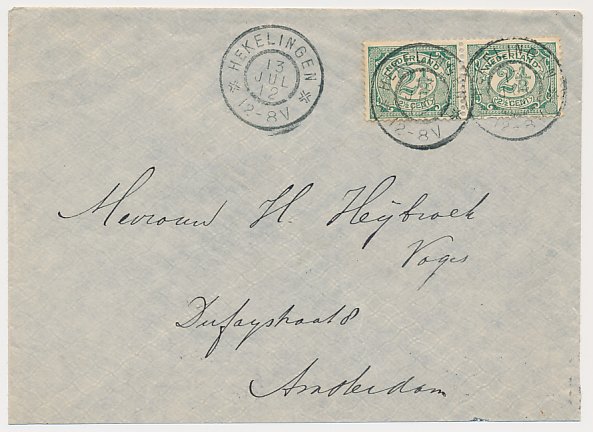 * HEKELINGEN *
13
JUL
12
12-8V
NEDERLAND
2½
2½ CENT
12-8V
NEDERLAND
2½
2½ CENT
Mevrouw H. Heijbroek
Voges
Dufaystraat 8
Amsterdam